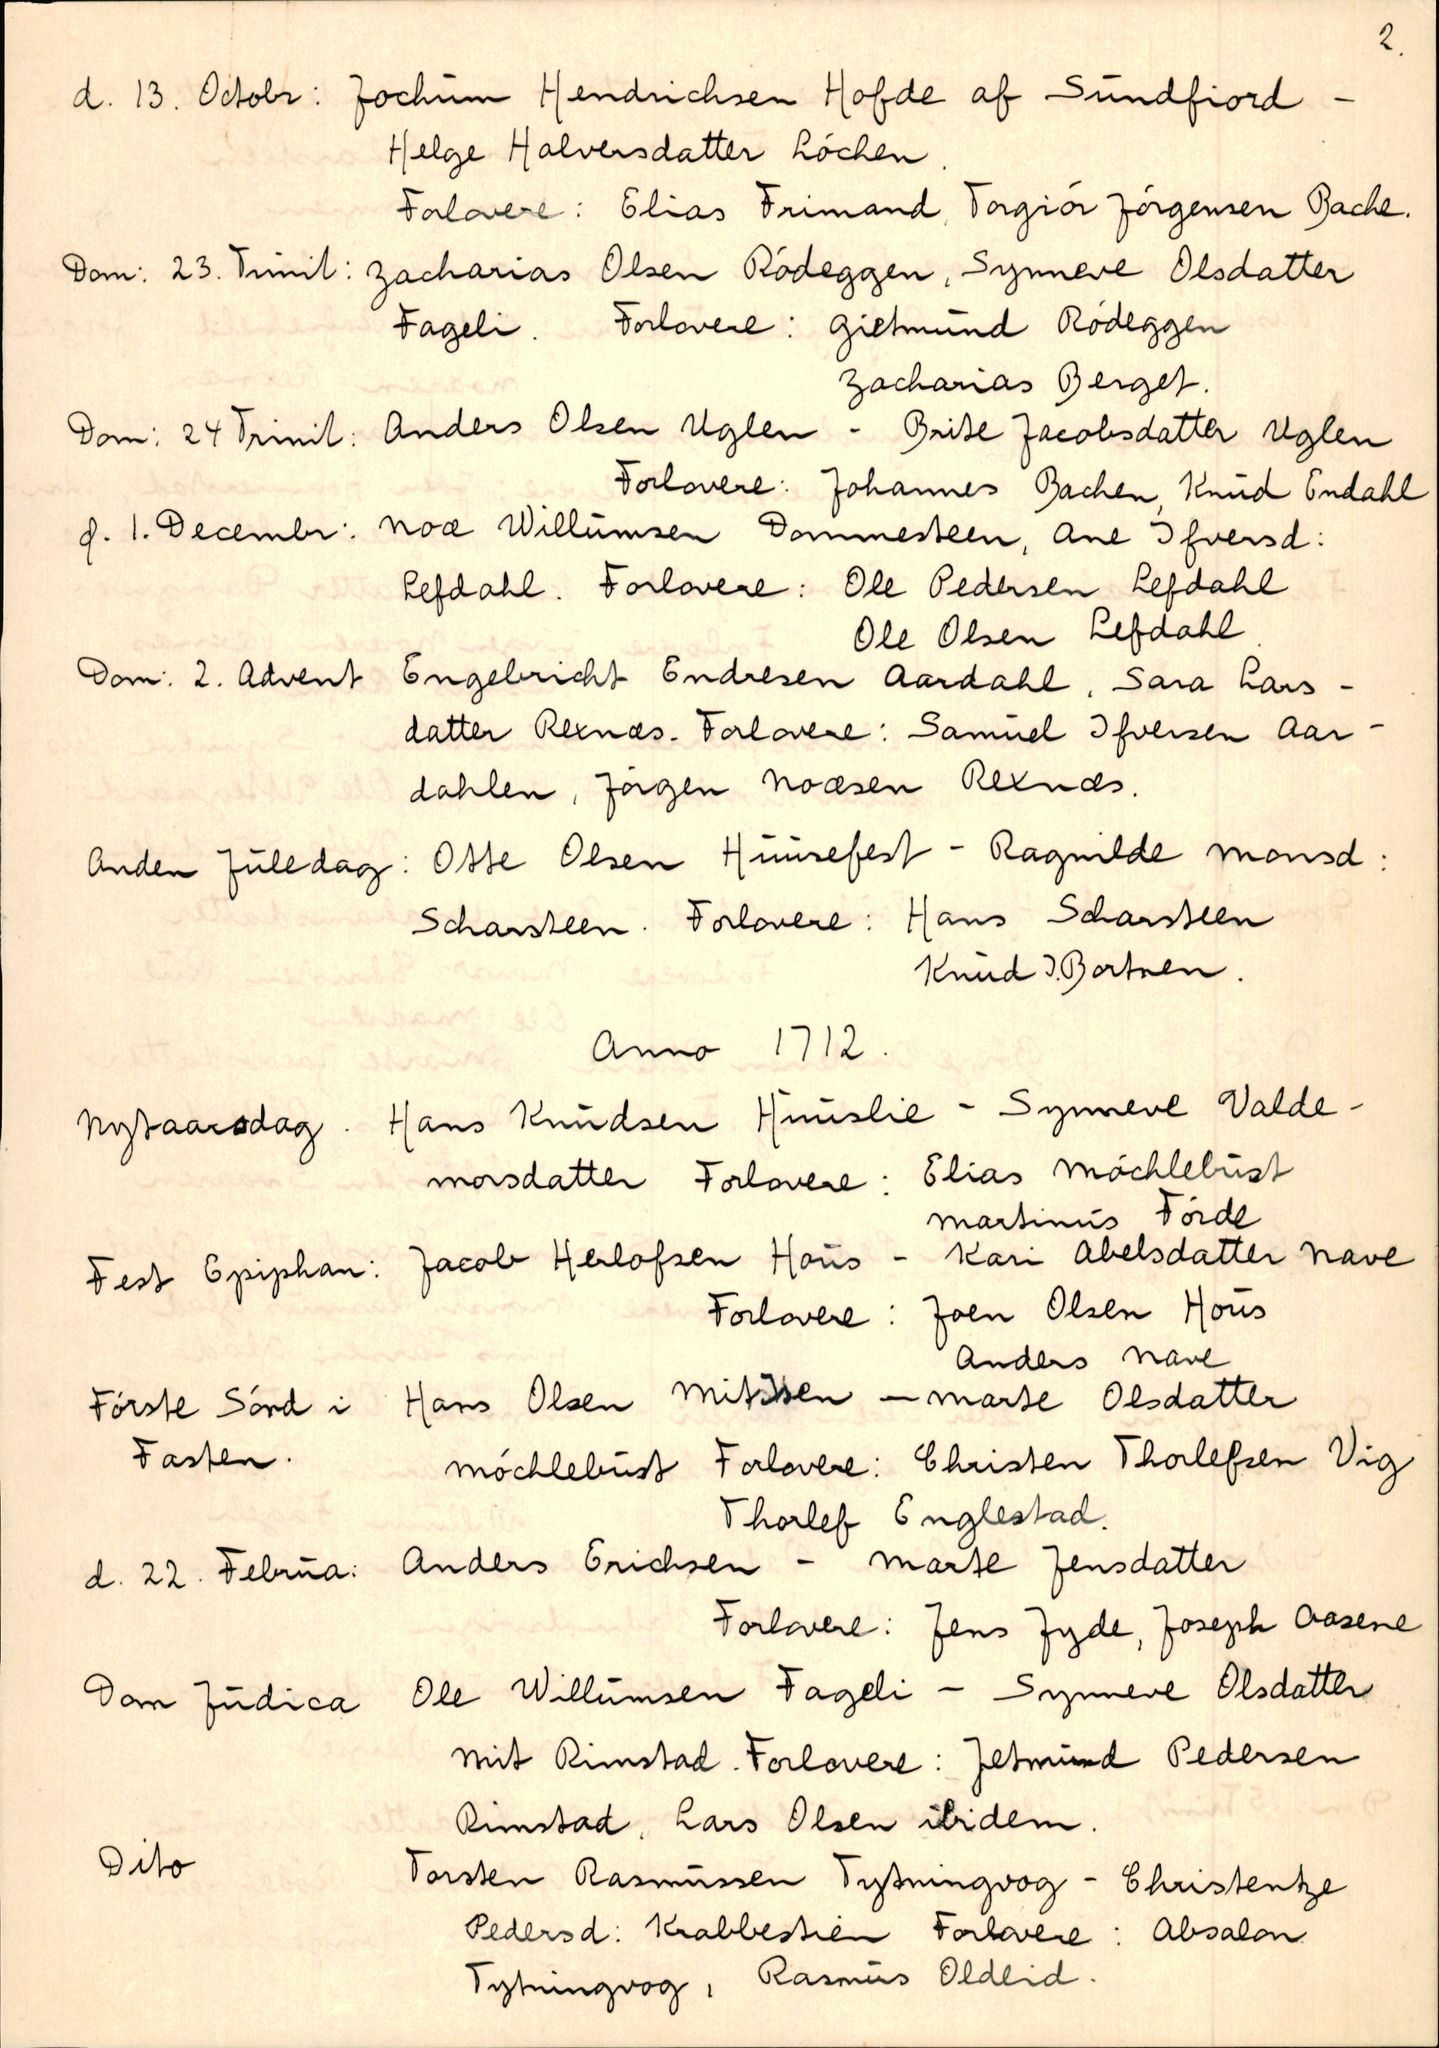 2.
d. 13. Octobr: Jochum Hendrichsen Hofde af Sundfiord -
Helge Halversdatter Lóchen.
Forlovere: Elias Frimand, Torgiór Jórgensen Bache.
Dom: 23. Trinit: Zacharias Olsen Ródeggen, Synneve Olsdatter
Fageli. Forlovere: Gietmund Ródeggen
Zacharias Berget.
Dom: 24 Trinit: Anders Olsen Uglen - Brite Jacobsdatter Uglen
Forlovere: Johannes Bachen, Knud Endahl
d. 1. Decembr: Noæ Willumsen Dommesteen, Ane Ifversd:
Lefdahl. Forlovere: Ole Pedersen Lefdahl
Ole Olsen Lefdahl.
Dom: 2. Advent Engebricht Endresen Aardahl, Sara Lars-
datter Rexnæs. Forlovere: Samuel Ifversen Aar-
dahlen, Jórgen Noæsen Rexnæs.
Anden Juledag: Otte Olsen Huusefest - Ragnilde Monsd:
Scharsteen. Forlovere: Hans Scharsteen
Knud I. Bortnen.
Anno 1712.
Nytaarsdag. Hans Knudsen Huuslie - Synneve Valde-
morsdatter Forlovere: Elias Móchlebust
Martinus Fórde
Fest Epiphan: Jacob Herlofsen Hous - Kari Abelsdatter Nave
Forlovere: Joen Olsen Hous
Anders Nave
Fórste Sónd i Hans Olsen - Marte Olsdatter
Fasten. Móchlebust Forlovere: Christen Thorlefsen Vig
Thorlef Englestad.
d. 22. Februa: Anders Erichsen - Marte Jensdatter
Forlovere: Jens Jyde, Joseph Aasene
Dom Judica Ole Willumsen Fageli - Synneve Olsdatter
Mit Rimstad. Forlovere: Jetmund Pedersen
Rimstad, Lars Olsen ibidem.
Dito Torsten Rasmussen Tytningvog - Christentze
Pedersd: Krabbestien Forlovere: Absalon
Tytningvog, Rasmus Oldeid.